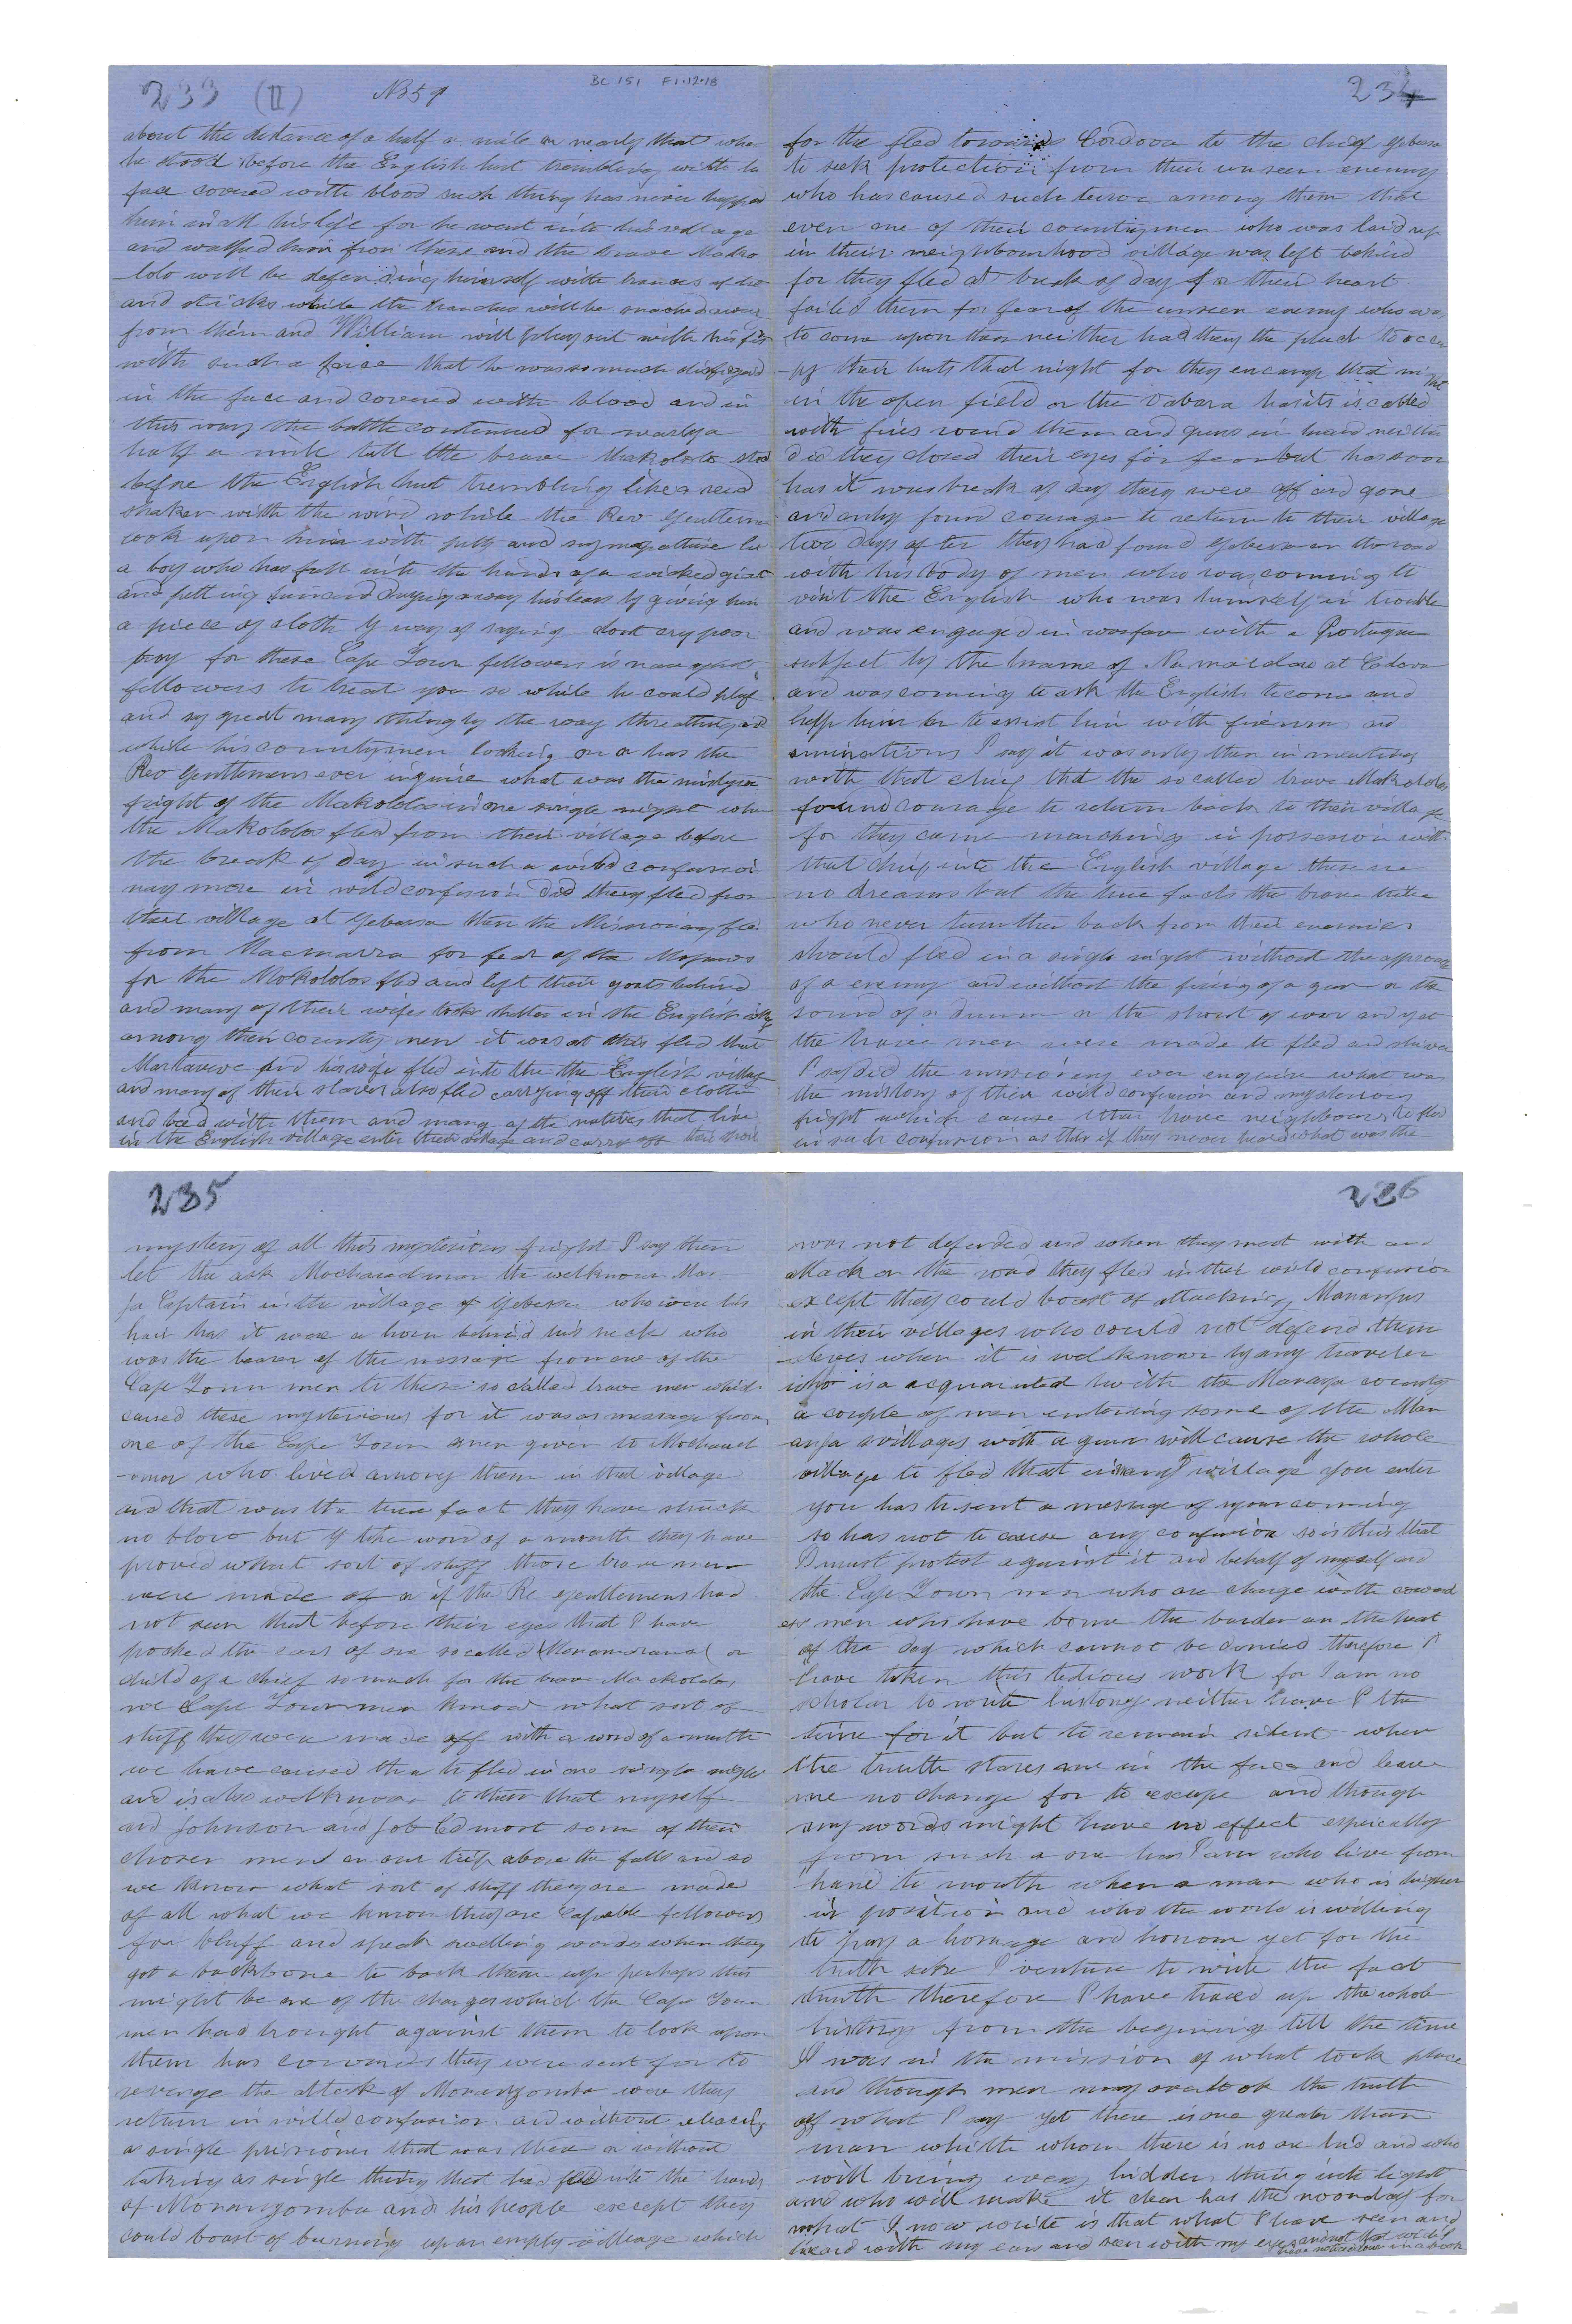 233 (II) No 59
BC 151 F1.12.18
about the distance of a half a mile or nearly that when
he stood before the English hut trembling with his
face covered with blood such thing has never happed
him in all his life for he went into his village
and walked him from there and the brave Mako
-lolo will be defending himself with
and sticks while the will be snached away
from them and William will play out with his fist
with such a force that he was so much disfigured
in the face and covered with blood and in
this way the battle continued for nearly a
half a mile till the brave Makololo stood
before the English hut trembling like a reed
shaken with the wind while the Rev Gentlemen
look upon him with pity and like
a boy who has fell into the hands of a wicked
and putting away his tears by giving him
a piece of cloth by way of saying dont cry poor
boy for these Cape Town fellowers is
fellowers to treat you so while he could
and great many things by the way threatning and
while his countrymen looking on or has the
Rev Gentlemens ever inquire what was the
fright of the Makololos in one single night when
the Makololos fled from their village before
the break of day in such a wild confusion
nay more in wild confusion did they fled from
that village at Gebessa then the Missionary fled
from for fear of the
for the Makololos fled and left their goats behind
and many of their wifes took shelter in the English village
among their country men it was at this fled that
and his wife fled into the the English village
and many of their slaves also fled carrying off their cloths
and bed with them and many of the natives that live
in the English village enter their village and carry off their
234
for the fled towards Cordova to the chief Gebessa
to seek protection from their unseen enemy
who has caused such terror among them that
even one of their countrymen who was laid up
in their neighbourhood village was left behind
for they fled at break of day for their heart
failed them for fear of the unseen enemy who was
to come upon them neither had they the pluck to occu
-py their huts that night for they encamp that night
in the open field or the Dabara has its is called
with fires round them and guns in hand neither
did they closed their eyes for fear but has soon
has it was break of day they were off and gone
and only found courage to return to their village
two days after they had found Gebessa on the road
with his body of men who was coming to
visit the English who was himself in trouble
and was engaged in warfare with a Portugue
subject by the name of at Codova
and was coming to ask the English to come and
help him or to assist him with firearms and
amination I say it was only then in meeting
with that chief that the so called brave Makololos
found courage to return back to their village
for they came marching in possession with
that chief into the English village these are
no dreams but the true facts the brave tribe
who never turn their back from their enemies
should fled in a single night without the approach
of a enemy and without the firing of a gun or the
sound of a drum or the shout of war and yet
the brave men were made to fled and shiver
I say did the missionary ever enquire what was
the mistory of their wild confusion and mysterious
fright which cause their brave neighbours to fled
in such confusion as this if they never heard what was the
235
mystery of all this mysterious fright I say then
let the ask the welknown Man
-ja Captain in the village of Gebessa who wore his
hair has it was a horn behind his neck who
was the bearer of the message from one of the
Cape Town men to these so called brave men which
caused these mysterious for it was a message from
one of the Cape Town men given to
who lived among them in that village
and that was the true fact they have struck
no blow but by the word of a mouth they have
proved what sort of stuff those brave men
were made of or if the Re gentlemens had
not seen that before their eyes that I have
the ears of one so called or
child of a chief so much for the brave Mackololos
we Cape Town men know what sort of
stuff they were made off with a word of a mouth
we have caused them to fled in one single night
and is also welknown to them that myself
and Johnson and Job Ed most some of their
chosen men on our trip above the falls and so
we know what sort of stuff they are made
of all what we know they are capable fellowers
for bluff and speek swelling words when they
got a backbone to back them up perhaps this
might be one of the charges which the Cape Town
men had brought against them to look upon
them has cowards they were sent for to
revenge the attack of Manangomba were they
return in willd confusion and without
a single prisioner that was there or without
taking as single thing that had fell into the hands
of Manangomba and his people except they
could boast of burning up an empty village which
236
was not defended and when they meet with and
attack on the road they fled in their wild confusion
except they could boast of attacking Manangas
in their villages who could not defend them
-selves when it is welknown by any traveler
who is a acquainted with the Manga country
a couple of men entering some of the Man
anja villages with a gun will cause the whole
village to fled that in any village you enter
you has to sent a message of your coming
so has not to cause any confusion so is this that
I must protest against it and behalf of myself and
the Cape Town men who are charge with coward
ess men who have borne the burden an the heat
of the day which cannot be denied therefore I
have taken this tedious work for I am no
scholar to write history neither have I the
time for it but to remain silent when
the truth stares me in the face and leave
me no change for to excape and though
my words might have no effect espically
from such a one has I am who live from
hand to mouth when a man who is higher
in position and who the world is willing
to pay a homage and honour yet for the
truth sake I venture to write the fact
truth therefore I have traced up the whole
history from the begining till the time
I was in the mission of what took place
and though men may overlook the truth
off what I say yet there is one greater than
man whith whom there is no and who
will bring every hidden thing into light
and who will make it clear has the noonday for
what I now write is that what I have seen and
heard with my ears and seen with my eyes and not that which I
have noticed down in a book